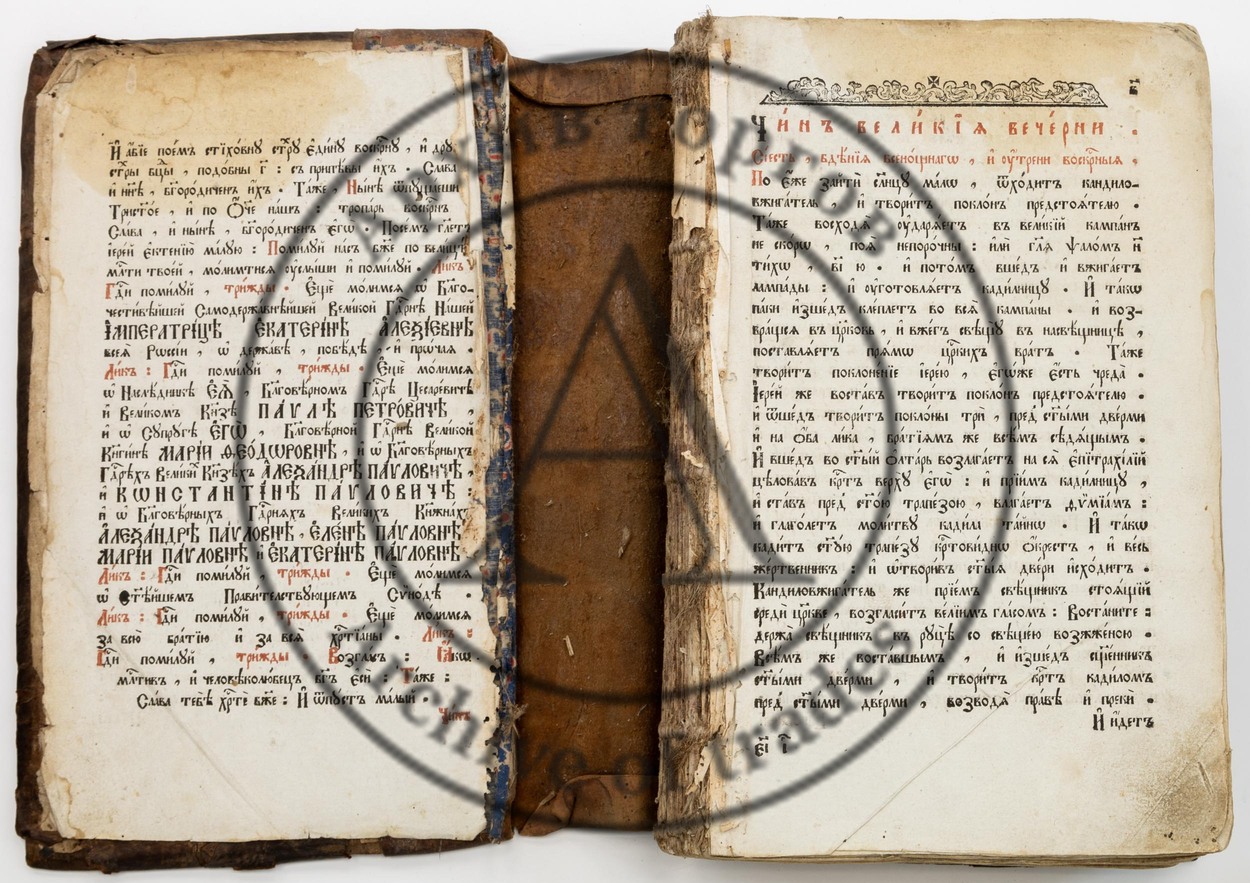 И҆ а҆бїе пое́мъ стїхо́внꙋ стрꙋ̀ є҆ди́нꙋ воскрнꙋ , и҆ дрꙋ
стры бцы , подо́бны г҃ : съ припѣ́вы и҆́хъ . Сла́ва
и҆ ны́нѣ , бг҃оро́диченъ и҆́хъ . Та́же , Ны́нѣ ѿпꙋща́еши
Трист҃о́е , и҆ по Ѻ҆́ч҃е на́шъ : тропа́рь воскрнъ
Сла́ва , и҆ ны́нѣ , бг҃оро́диченъ є҆гѡ̀ . Посе́мъ гл҃етъ
і҆ере́й є҆ктенїю̀ ма́лꙋю : Поми́лꙋй на́съ бж҃е по вели́цѣ
мл҃ти твое́й , мо́лимтися ᲂу҆слы́ши и҆ поми́лꙋй . Ли́къ :
Гд҇и поми́лꙋй , три́жды . Є҆щѐ мо́лимся ѡ҆ Бл҃го-
чести́вѣйшей Самодержа́внѣйшей Вели́кой Гд҇рнѣ На́шей
І҆МПЕРАТРИ́ЦѢ Е҆КАТЕРИ́НѢ А҆ЛЕѮІ́ЕВНѢ
всея̀ Рѡссі́и , ѡ҆ держа́вѣ , побѣ́дѣ , и҆ про́чая .
Ли́къ : Гд҇и поми́лꙋй , три́жды . Є҆щѐ мо́лимся
ѡ҆ Наслѣ́дникѣ Є҆Ѧ̀ , Бл҃говѣ́рномъ Гд҇рѣ Цесаре́вичѣ
и҆ Вели́комъ Кнѕѣ ПА́ѴЛѢ ПЕТРО́ВИЧѢ ,
и҆ ѡ҆ Сꙋпрꙋ́гѣ Є҆ГѠ̀ , Бл҃говѣ́рной Гд҇рнѣ Вели́кой
Кнги́нѣ МАРІ́И ѲЕОДѠРОВНѢ , и҆ ѡ҆ Бл҃говѣ́рныхъ
Гд҇рѣхъ Вели́ки Кнѕѣхъ А҆ЛЕѮА́НДРѢ ПА́ѴЛОВИЧѢ ,
и҆ КѠНСТАНТІ́НѢ ПА́ѴЛОВИЧѢ :
и҆ ѡ҆ Бл҃говѣ́рныхъ Гд҇рняхъ Вели́кихъ Кнжна́хъ
А҆ЛЕѮА́НДРѢ ПА́ѴЛОВНѢ , Є҆ЛЕ́НѢ ПА́ѴЛОВНѢ
МАРІ́И ПА́ѴЛОВНѢ и҆ Е҆КАТЕРИ́НѢ ПА́ѴЛОВНѢ
Ли́къ : Гд҇и поми́лꙋй , три́жды . Є҆щѐ мо́лимся
ѡ҆ ст҃ѣ́йшемъ Прави́телствꙋющемъ Сѵно́дѣ .
Ли́къ : Гд҇и поми́лꙋй , три́жды . Є҆щѐ мо́лимся
за всю̀ бра́тїю и҆ за вся̀ хрт҇їа́ны . Ли́къ :
Гд҇и поми́лꙋй , три́жды . Во́зглсъ : Ꙗ҆́кѡ
мл҃тивъ , и҆ человѣколю́бецъ бг҃ъ є҆сѝ : Та́же :
Сла́ва тебѣ̀ хрт҇ѐ бж҃е : И҆ ѿпꙋ́стъ ма́лый .
Чи́нъ
в҃
ЧИ́НЪ ВЕЛИ́КІѦ ВЕЧЕ́РНИ .
Сі́есть , бдѣ́нїѧ всено́щнагѡ , и҆ ᲂу҆́трени воскр҇ныѧ ,
По є҆́же зайтѝ сл҃нцꙋ ма́лѡ , ѿхо́дитъ кандило-
вжига́тель , и҆ твори́тъ покло́нъ предстоя́телю .
Та́же восходѧ̀ ᲂу҆даря́етъ въ вели́кїй кампа́нъ
не ско́рѡ , поѧ̀ непоро́чны : и҆лѝ гл҃ѧ ѱало́мъ н҃
ти́хѡ , в҃і ю . и҆ пото́мъ вше́дъ и҆ вжига́етъ
лампа́ды : и҆ ᲂу҆готовля́етъ кади́лницꙋ . И҆ та́кѡ
па́ки и҆зше́дъ кле́плетъ во всѧ̀ кампа́ны . и҆ воз-
вра́щся въ цр҃ковь , и҆ вже́гъ свѣщꙋ̀ въ насвѣ́щницѣ ,
поставля́етъ пря́мѡ цр҃кихъ вра́тъ . Та́же
твори́тъ поклоне́нїе і҆ере́ю , є҆гѡ́же є҆́сть чреда̀ .
І҆ере́й же воста́въ твори́тъ покло́нъ предстоя́телю .
и҆ ѿше́дъ твори́тъ покло́ны трѝ , пред̾ ст҃ы́ми дверми
и҆ на ѻ҆́ба ли́ка , бра́тїямъ же всѣ́мъ сѣдѧ́щымъ .
И҆ вше́дъ во ст҃ы́й ѻ҆лта́рь возлага́етъ на сѧ̀ є҆пїтрахи́лїй
цѣлова́въ кр҇тъ верхꙋ̀ є҆гѡ̀ : и҆ прїи́мъ кади́лницꙋ ,
и҆ ста́въ пред̾ ст҃о́ю трапе́зою , влага́етъ ѳѵмїа́мъ :
и҆ глаго́летъ моли́твꙋ кади́ла та́йнѡ . И҆ та́кѡ
кади́тъ ст҃ꙋ́ю трапе́зꙋ кр҇тови́днѡ ѻ҆́крестъ , и҆ ве́сь
же́ртвенникъ : и҆ ѿтвори́въ ст҃ы́ѧ две́ри и҆схо́дитъ .
Кандиловжига́тель же прїе́мъ свѣ́щникъ стоѧ́щїй
средѝ цр҃кве , возгласи́тъ ве́лїимъ гла́сомъ : Воста́ните :
держа̀ свѣ́щникъ въ рꙋцѣ̀ со свѣще́ю возжже́ною .
Всѣ́мъ же воста́вшымъ , и҆ и҆зше́дъ сщ҃е́нникъ
ст҃ы́ми две́рми , и҆ твори́тъ кр҇тъ кади́ломъ
пред̾ ст҃ы́ми две́рми , возводѧ̀ пра́вѣ и҆ пре́ки .
И҆ и҆́детъ
Архив Торгов
Archive of trades
А